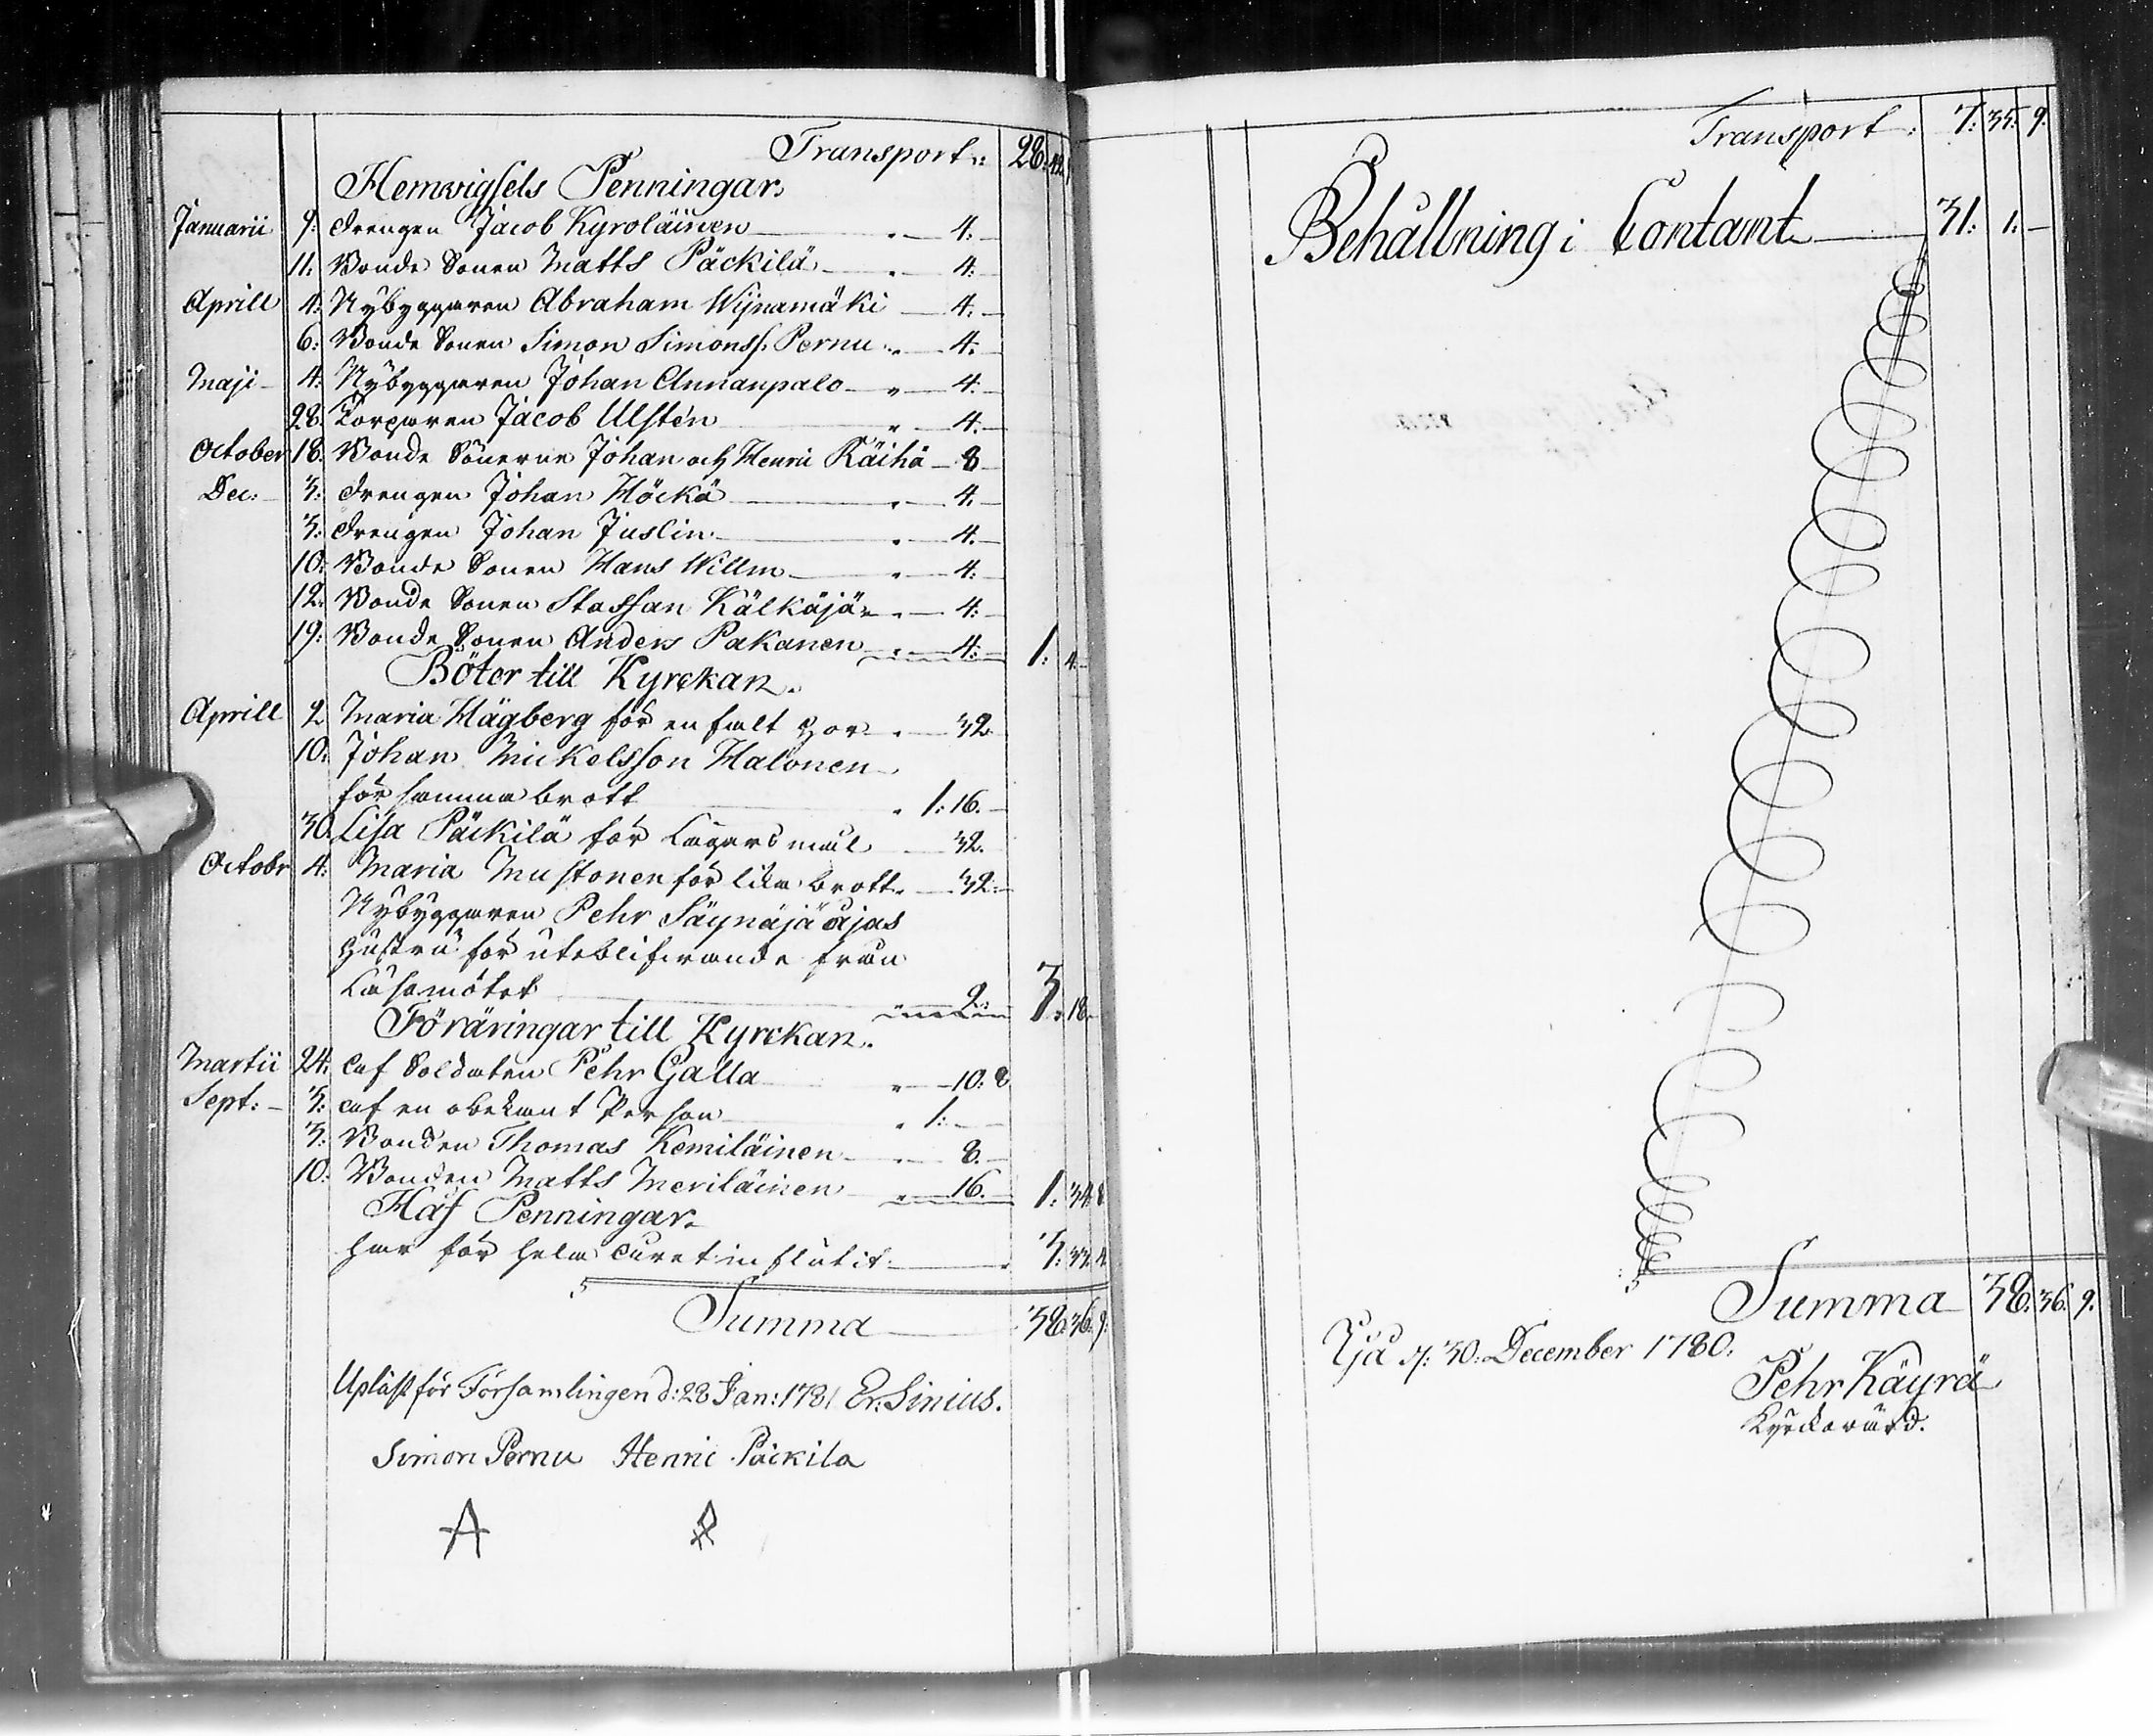 Transport: 28. 42. 1
Hemvigsels Penningar.
Januarii 9: Drengen Jacob Kyroläinen " 4. —
11: Bonde Sonen Matts Päckilä " 4: —
Aprill 4: Nybyggaren Abraham Wijnamäki 4. —
6: Bonde Sonen Simon Simonss. Pernu " 4. —
Maji 4: Nybyggaren Johan Annanpalo " 4: —
28. Torparen Jacob Ulstén " 4. —
October 18. Bonde Sönerne Johan och Henric Räihä 8 —
Dec: 3: Drengen Johan Höckä " 4. —
3: Drengen Johan Juslin " 4. —
10: Bonde Sonen Hans Willm " 4: —
12. Bonde Sonen Staffan Kälkäjä " 4: —
19: Bonde Sonen Anders Pakanen " 4: — 1: 4. —
Böter till Kyrckan.
Aprill 2 Maria Hägberg för enfalt hor " 32.
10: Johan Mickelsson Halonen
för samma brott " 1: 16. —
30. Lisa Päckilä för Lägersmål 32.
Octobr 4: Maria Mustonen för lika brott 32: —
Nybyggaren Pehr Säynäjäojas
hustru för uteblifwande från
Läsemötet 2: — 3. 18. —
Föräringar till Kyrckan.
Martii 24: af Soldaten Pehr Galla " 10: 8
Sept: 3: af en obekant Person " 1: —
3: Bonden Thomas Kemiläinen " 8. —
10: Bonden Matts Meriläinen " 16. — 1: 34. 8
Håf Penningar.
har för hela året influtit 3: 33. 4.
Summa 38. 36. 9.
Upläst för Församlingen d: 28 Jan: 1781 Er: Sinius.
Simon Pernu Henric Päckila
A
Transport: 7: 35. 9.
Behållning i Contant 31: 1: —
Summa 38. 36. 9.
Ijå d: 30: December 1780.
Pehr Käyrä
Kyrckowärd.